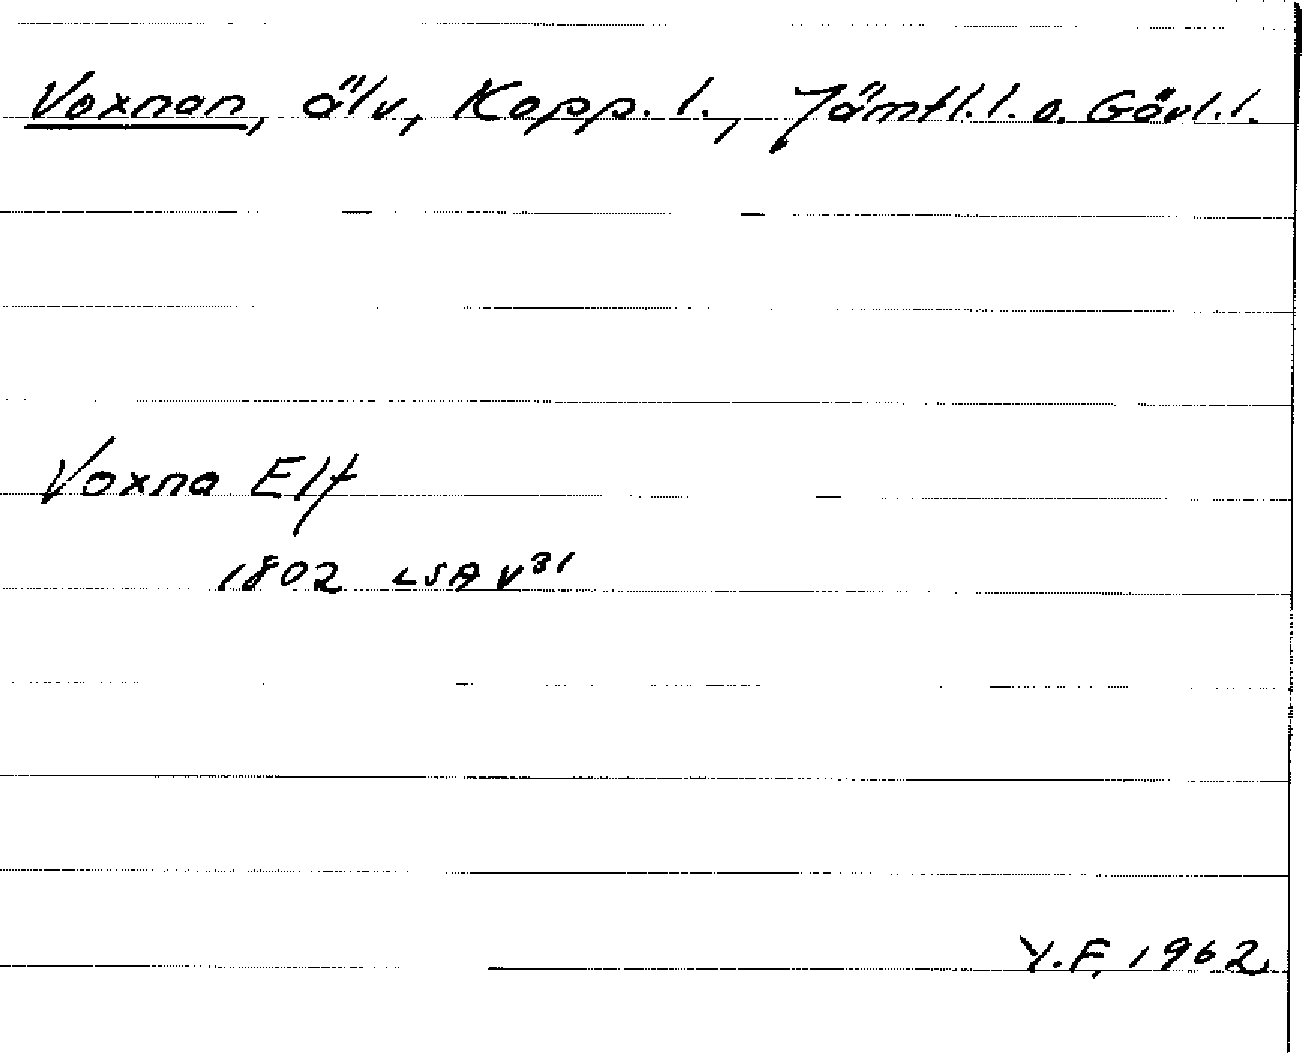 Voxnan, älv, Kopp. l., Jämtl. l. o. Gävl. l.
Voxna Elf
1802 LSA V 31
Y.F. 1962